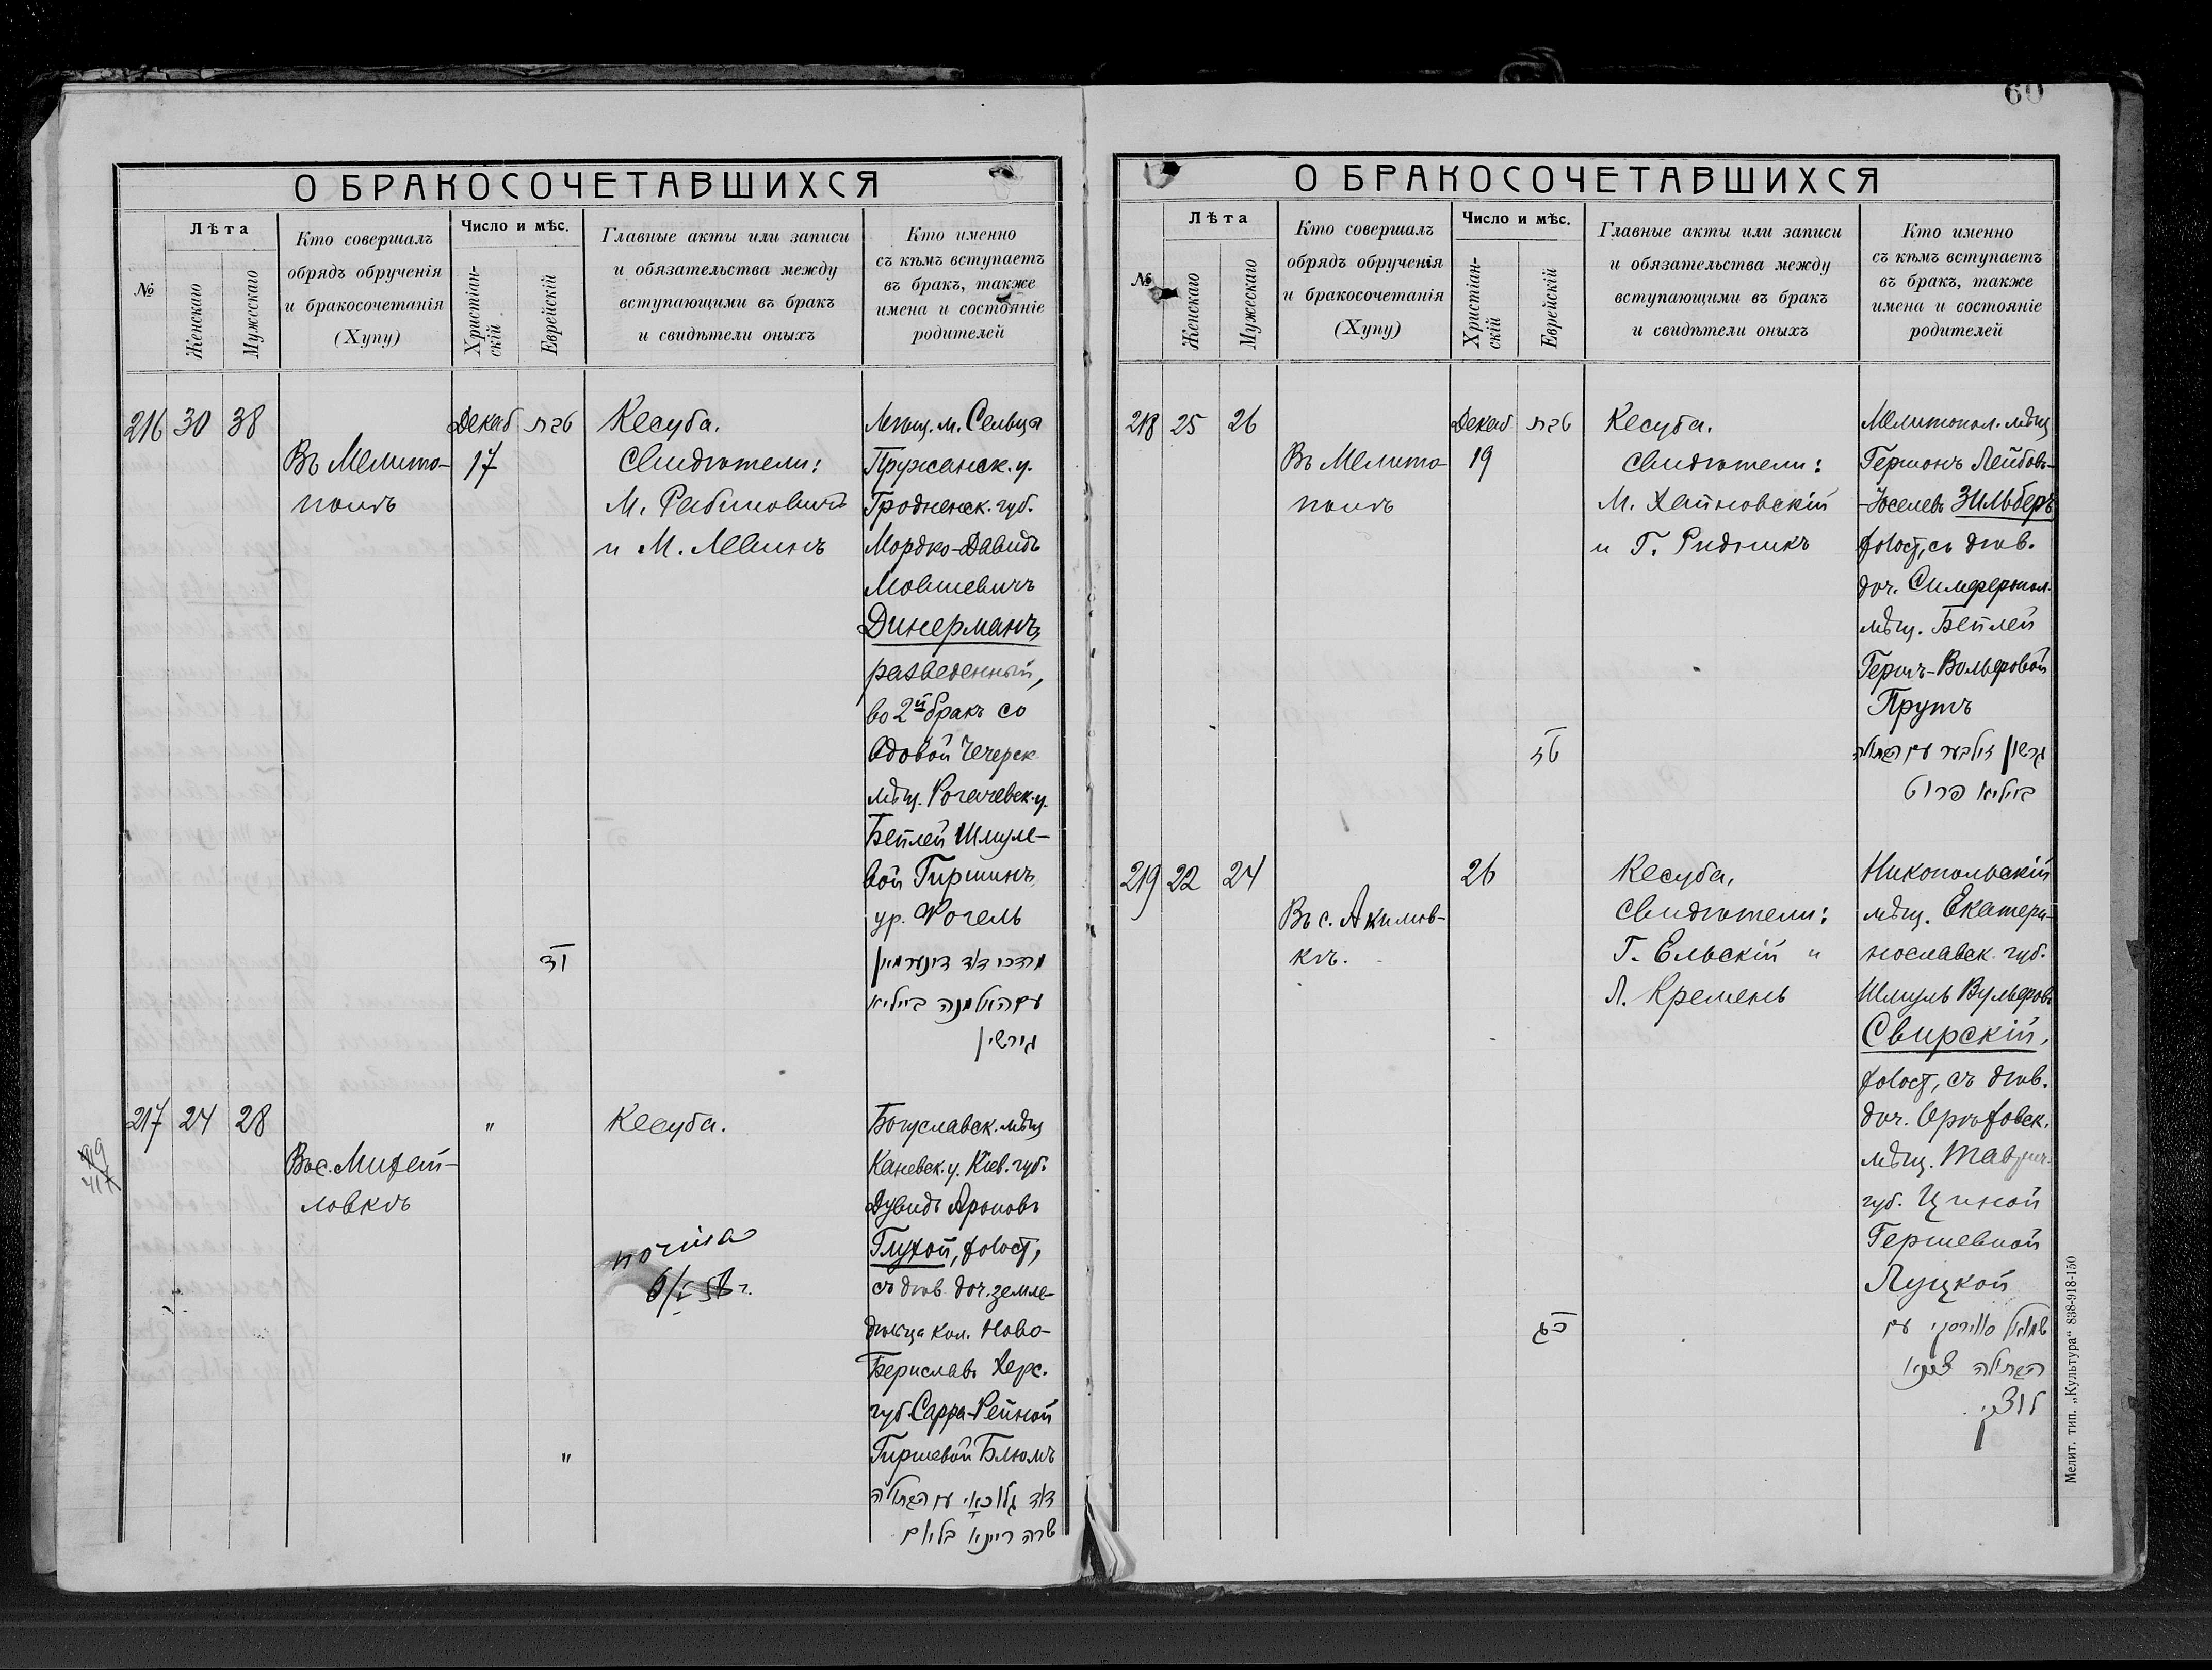 60
О БРАКОСОЧЕТАВШИХСЯ
№
Лѣта
Женскаго
Мужескаго
Кто совершалъ
обрядъ обрученія
и бракосочетанія
(Хупу)
Число и мѣс.
Христіан-
скій
Еврейскій
Главные акты или записи
и обязательства между
вступающими въ бракъ
и свидѣтели оныхъ
Кто именно
съ кѣмъ вступаетъ
въ бракъ, также
имена и состояніе
родителей
216 30 38
Въ Мелито-
полѣ
Декаб
17
טבת
יד
Кесуба.
Свидѣтели:
М. Рабиновичъ
и М. Левинъ
Мѣщ. м. Сельца
Пружанск. у.
Гродненск. губ.
Мордко-Давидъ
Мовшевичъ
Динерманъ,
разведенный,
во 2й бракъ со
вдовой Чечерск.
мѣщ. Рогачевск. у.
Бейлей Шмуле-
вой Гиршинъ,
ур. Фогель
מרדכי דוד דינערמאן
עם האלמנה ביילא
גירשין
217 24 28
Въ с. Михай-
ловкѣ
"
"
Кесуба.
Богуславск. мѣщ
Каневск. у. Кіев. губ.
Дувидъ Ароновъ
Глухой, холост,
съ дѣв. доч. земле-
дѣльца кол. Ново-
Бериславъ Херс.
губ. Сарра-Рейной
Гиршевой Блюмъ
שרה ריינא בלום
О БРАКОСОЧЕТАВШИХСЯ
№
Лѣта
Женскаго
Мужескаго
Кто совершалъ
обрядъ обрученія
и бракосочетанія
(Хупу)
Число и мѣс.
Христіан-
скій
Еврейскій
Главные акты или записи
и обязательства между
вступающими въ бракъ
и свидѣтели оныхъ
Кто именно
съ кѣмъ вступаетъ
въ бракъ, также
имена и состояніе
родителей
218 25 26
Въ Мелито-
полѣ
Декаб
19
טבת
טז
Кесуба.
Свидѣтели:
М. Хайновскій
и Г. Рудникъ
Мелитопол. мѣщ
Гершонъ Лейбовъ-
-Іоселевъ Зильберъ
холост, съ дѣв.
доч. Симферопол.
мѣщ. Бейлей
Гершъ-Вольфовой
Прутъ
גרשון זילבער עם הבתולה
ביילא פרוט
219 22 24
Въ с. Акимов-
кѣ.
26
כג
Кесуба,
Свидѣтели:
Г. Ельскій и
Л. Кремень
Никопольскій
мѣщ. Екатери-
нославск. губ.
Шмуль Вульфовъ
Свирскій,
холост, съ дѣв.
доч. Орѣховск.
мѣщ. Таврич.
губ. Циной
Гершевной
Луцкой
שמואל סווירסקי עם
הבתולה צינא
לוצקי
Мелит. тип. „Культура“ 838-918-150